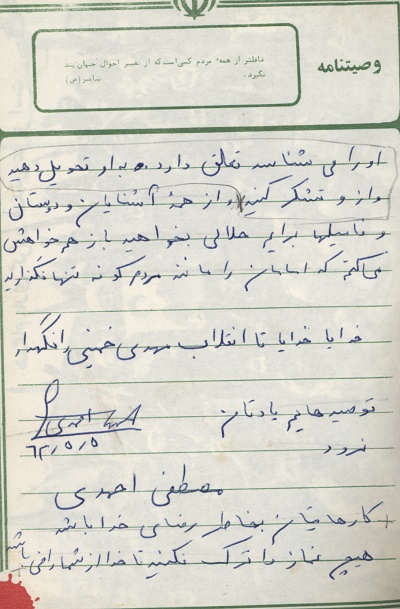 وصیتنامه
غافلتر از همهٔ مردم کسی است که از تغییر احوال جهان پند
نگیرد .
پیامبر (ص)
او را می شناسد تعلق دارد به او تحویل دهید
و از او تشکر کنید و از همهٔ آشنایان و دوستان
و فامیلها برایم حلالی بخواهید باز هم خواهش
می‌کنم که امامان را مانند مردم کوفه تنها نگذارید
خدایا خدایا تا انقلاب مهدی خمینی را نگهدار
توصیه هایم یادتان
نرود
احمدی
۶۲/۵/۵
مصطفی احمدی
کارهایتان بخاطر رضای خدا باشد
هیچ نماز را ترک نکنید تا خدا از شما راضی باشد